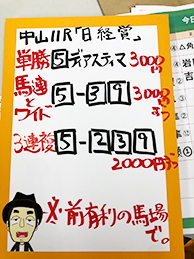 中山11R「日経賞」
単勝 5 ディアスティマ 3000円
馬連とワイド 5-39 3000円ずつ
3連複 5-239
2000円ずつ
※前有利の馬場で。